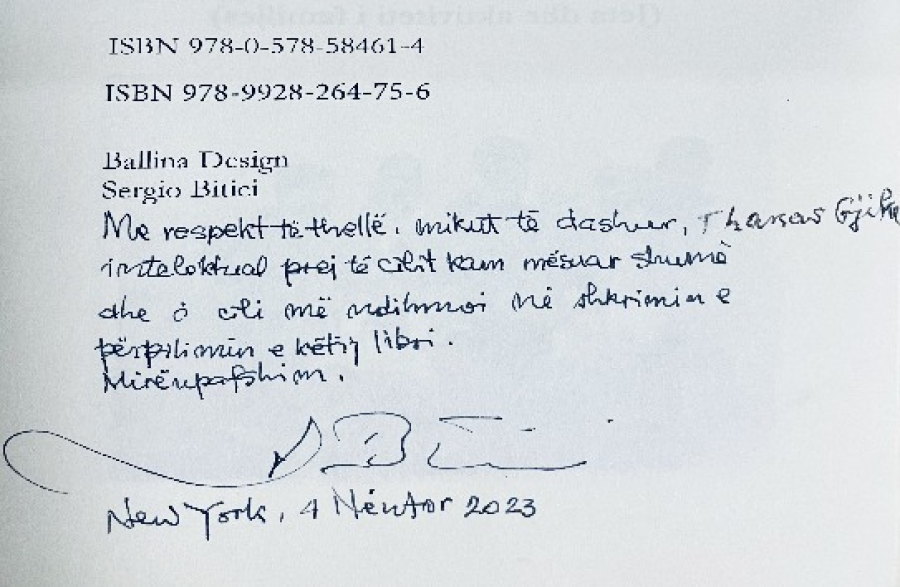 ISBN 978-0-578-58461-4
ISBN 978-9928-264-75-6
Ballina Design
Sergio Bitici
Me respekt të thellë, mikut të dashur, Thanas Gjika
intelektual prej të cilit kam mësuar shumë
dhe i cili më ndihmoi në shkrimin e
përpilimin e këtij libri.
Mirënpafshim.
New York, 4 Nëntor 2023